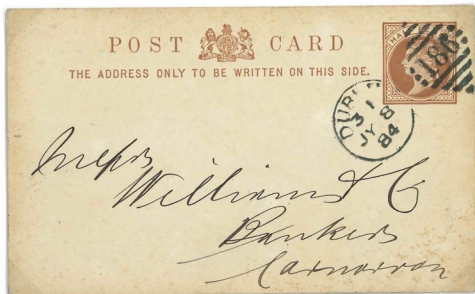 POST CARD
THE ADDRESS ONLY TO BE WRITTEN ON THIS SIDE.
HA
186
DUBL
31
JY 8
84
Messrs
Williams & Co
Bankers
Carnarvon